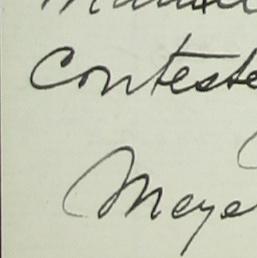 Conteste
Meye